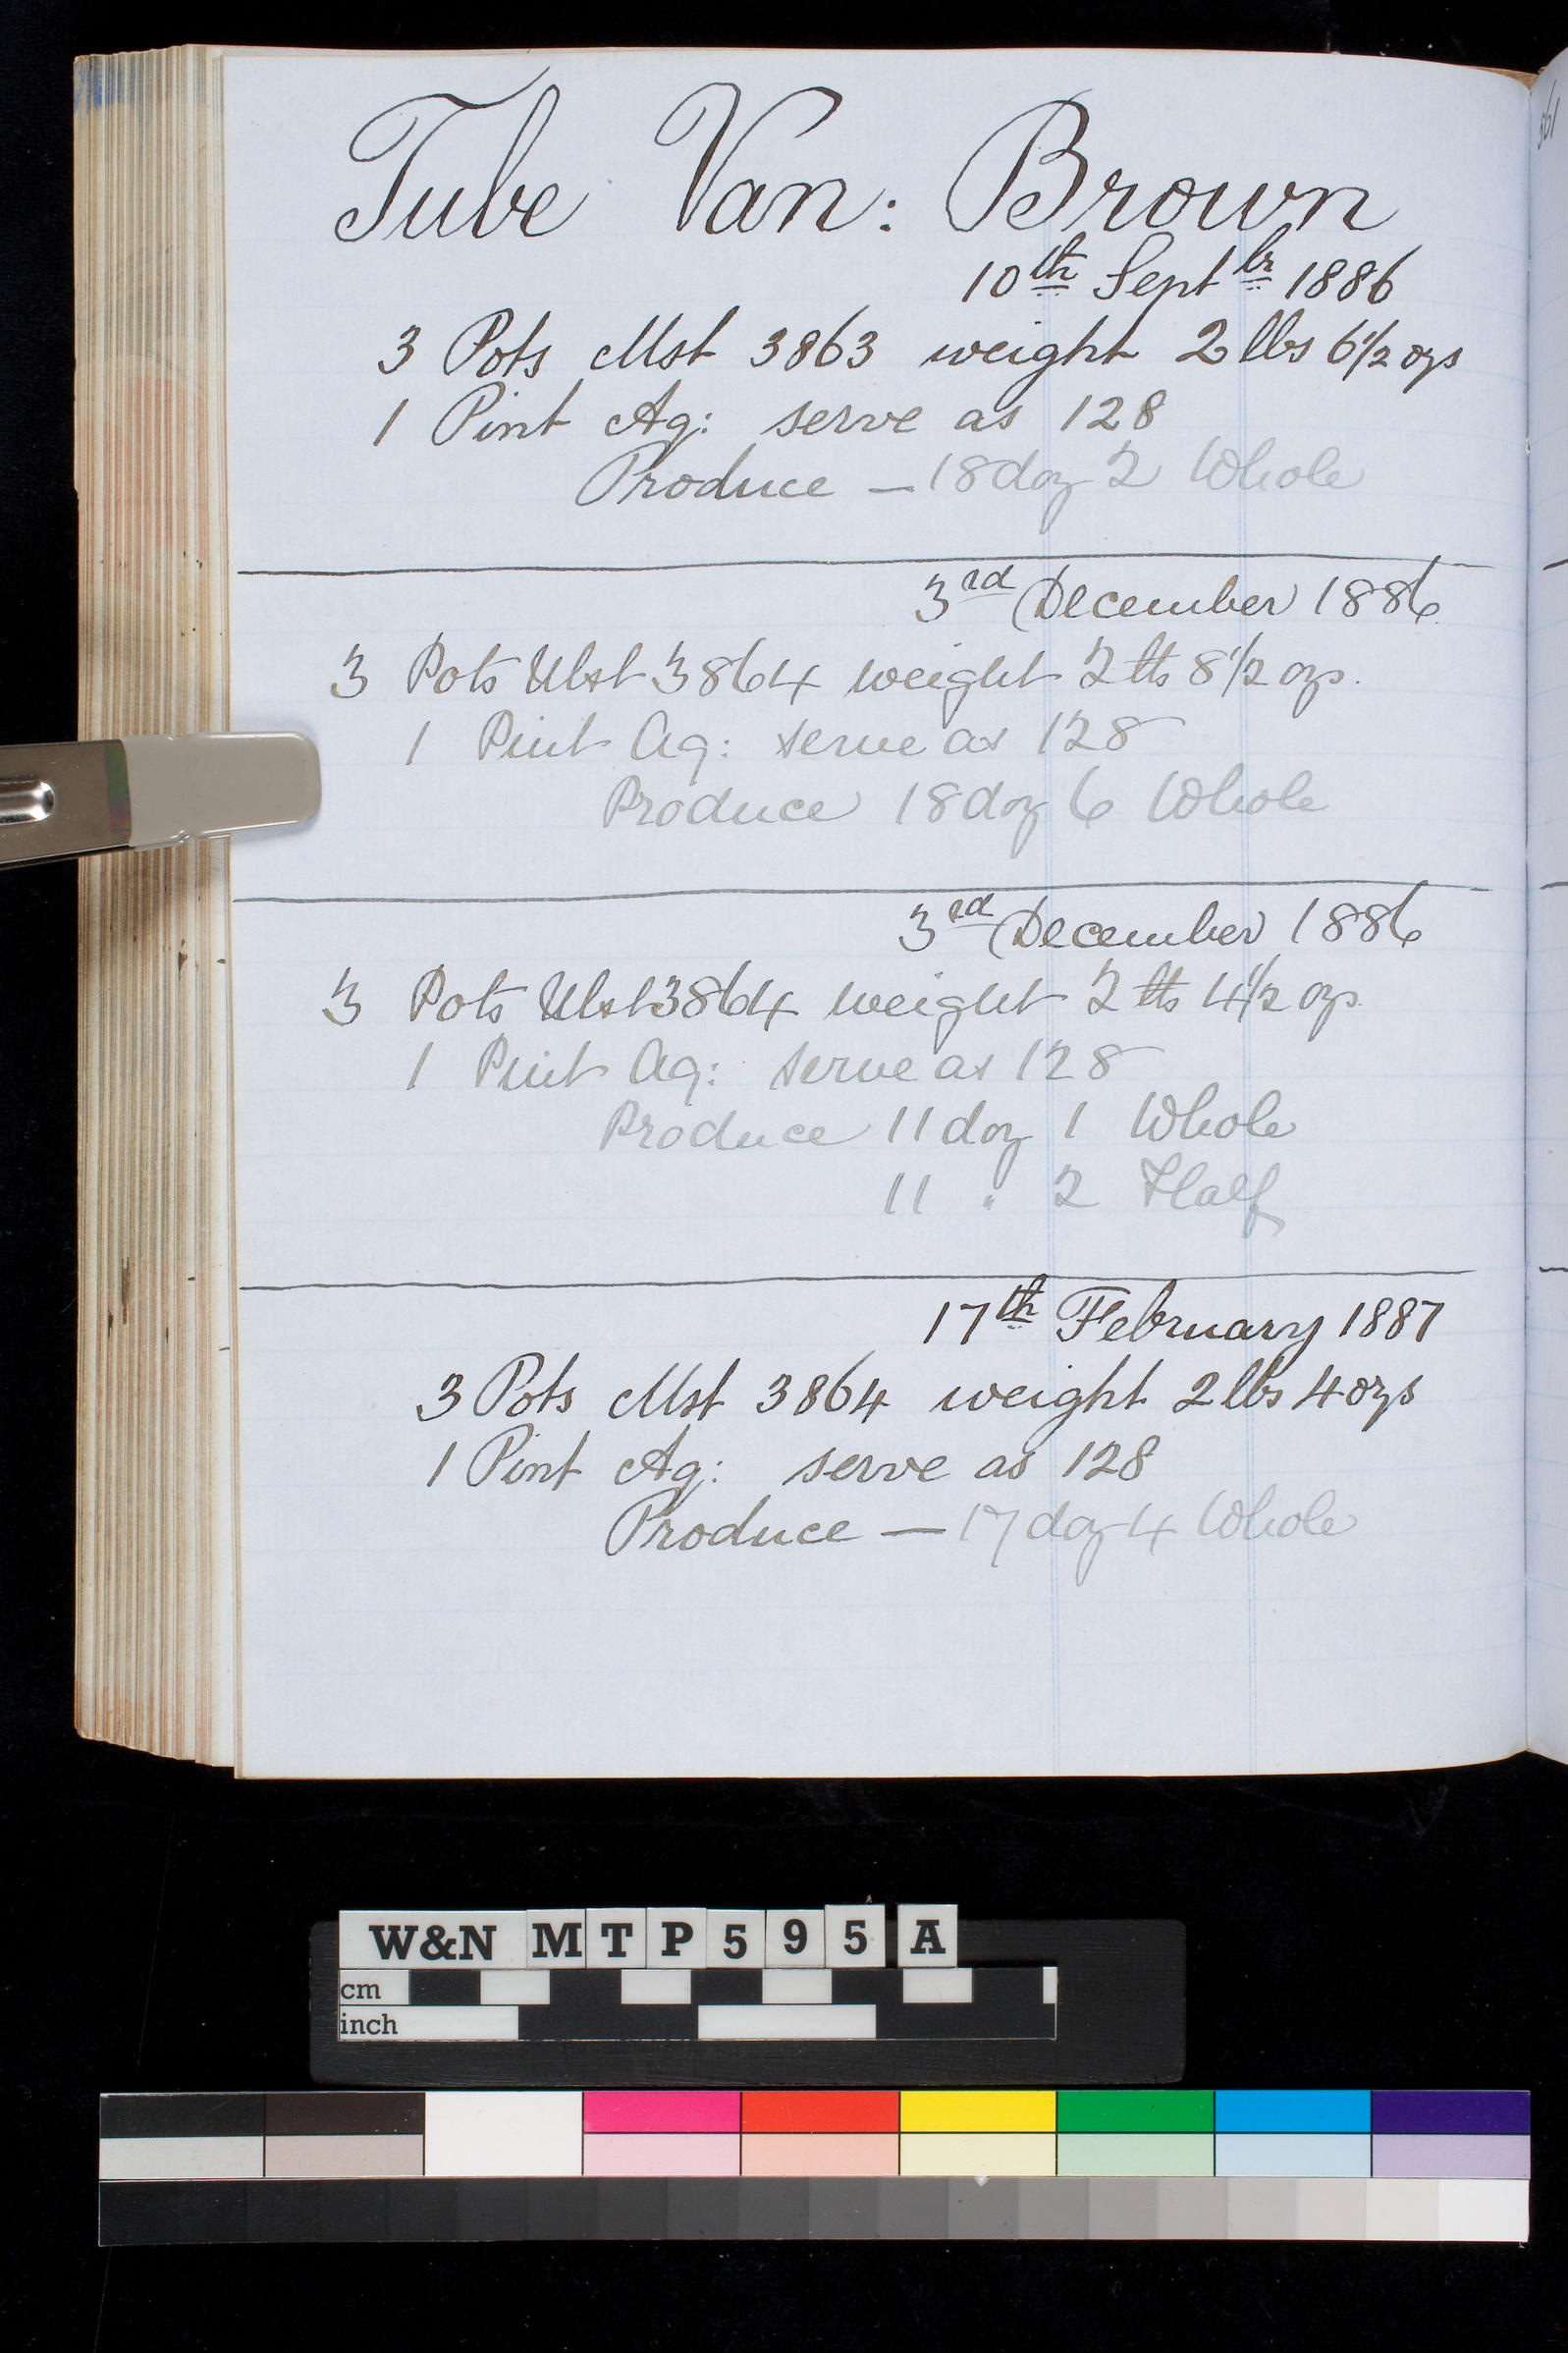 Tube Van: Brown
10th Septbr 1886
3 Pots Mst 3863 weight 2 lbs 6½ ozs
1 Pint Aq: serve as 128
Produce — 18 doz 2 Whole
3rd December 1886
3 Pots Mst 3864 weight 2 lbs 8½ ozs.
1 Pint Aq: serve as 128
Produce 18 doz 6 Whole
3rd December 1886
3 Pots Mst 3864 weight 2 lbs 4½ ozs
1 Pint Aq: serve as 128
Produce 11 doz 1 Whole
11 " 2 Half
17th February 1887
3 Pots Mst 3864 weight 2 lbs 4 ozs
1 Pint Aq: serve as 128
Produce — 17 doz 4 Whole
W&N MTP595A
cm
inch